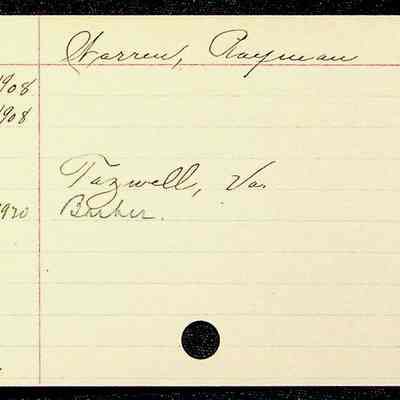 Warren, Rayman
1908
1908
Tazwell, Va.
1920 Barber.